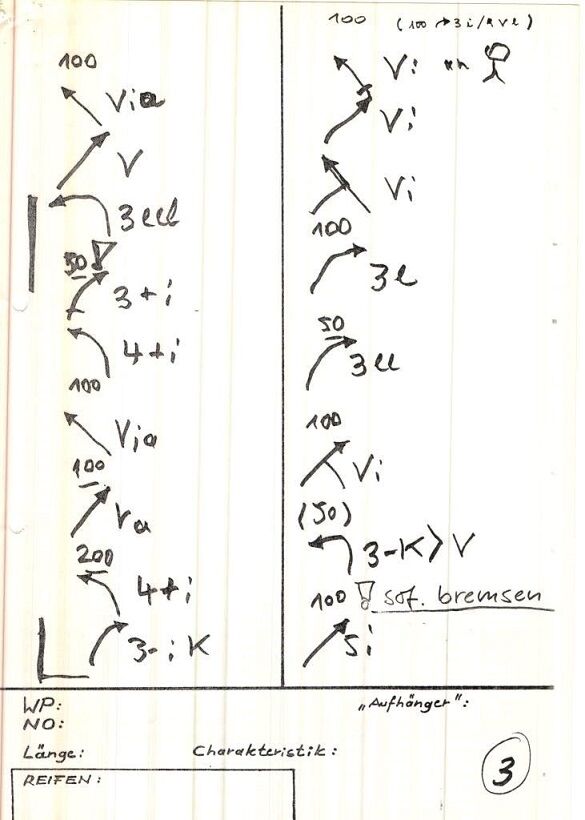 100
Via
V
3 ell
50
3+i
4+i
100
Via
100
Va
200
4+i
3-iK
100
Vi
Vi
Vi
100
3l
50
3ll
100
Vi
(50)
3-K>V
100 ! sof. bremsen
5i
WP:
NO:
Länge: Charakteristik:
REIFEN:
„Aufhänger":
3